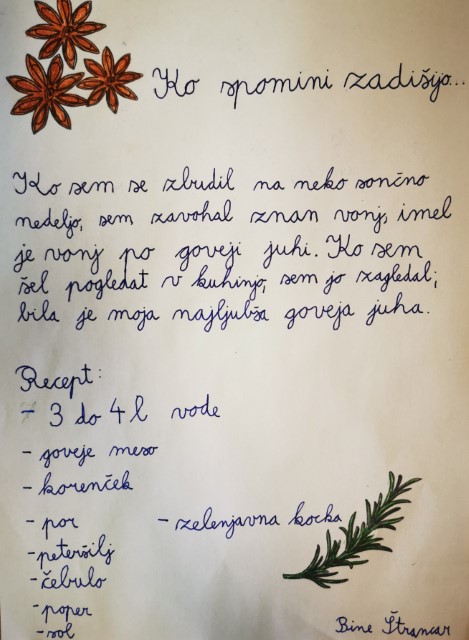 Ko spomini zadišijo...
Ko sem se zbudil na neko sončno
nedeljo, sem zavohal znan vonj, imel
je vonj po goveji juhi. Ko sem
šel pogledat v kuhinjo, sem jo zagledal;
bila je moja najljubša goveja juha.
Recept:
- 3 do 4 l vode
- goveje meso
- korenček
- por
- zelenjavna kocka
- peteršilj
- čebulo
- poper
- sol
Bine Štrancar